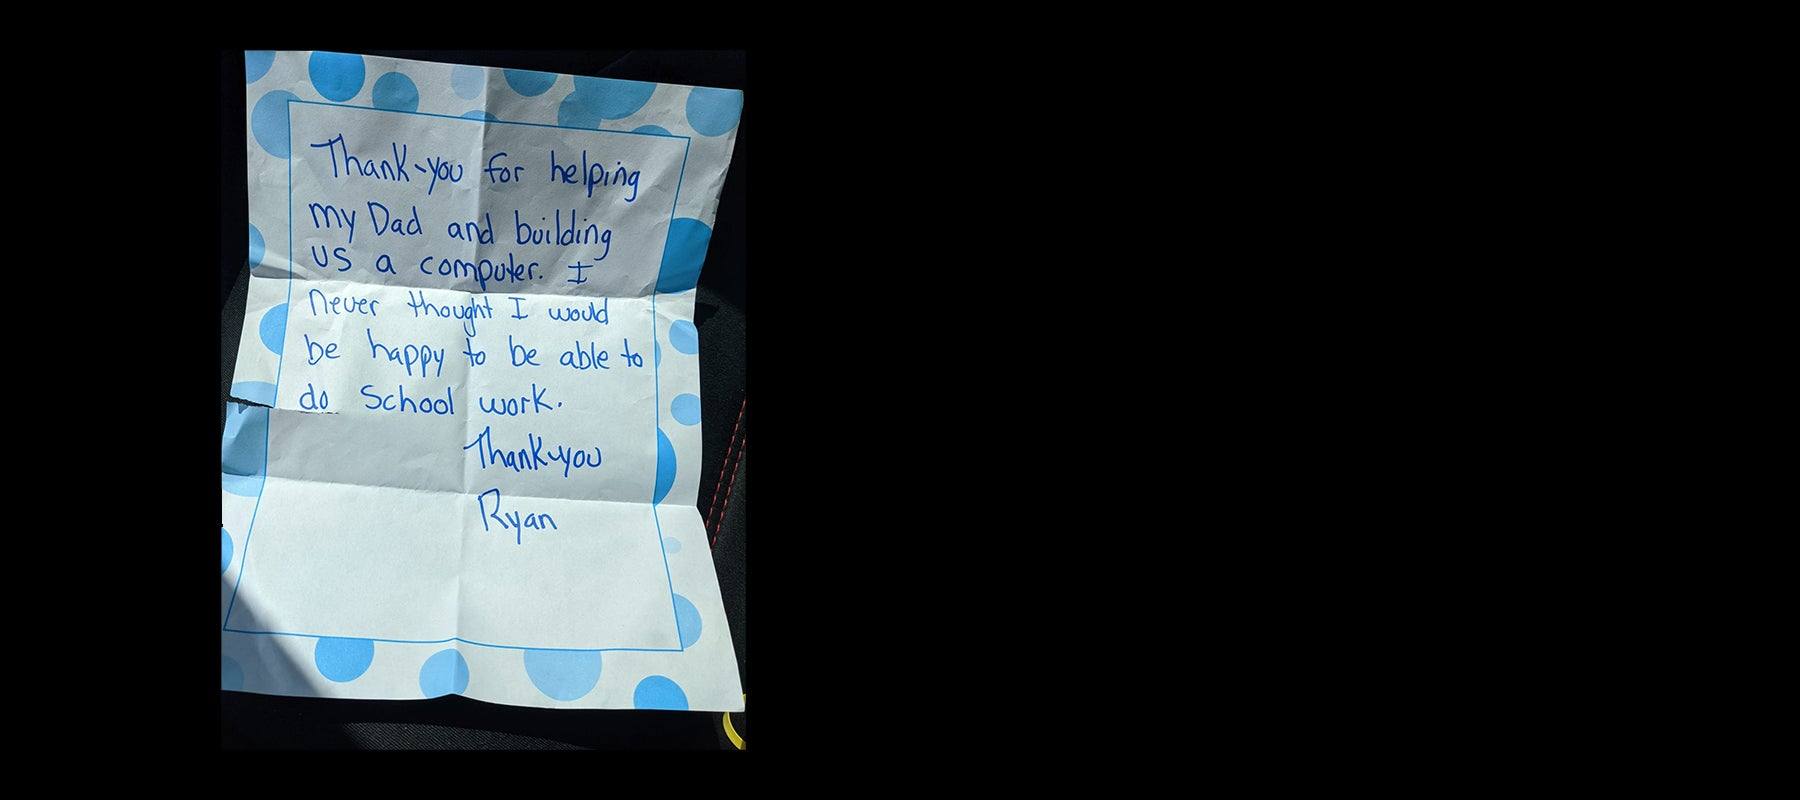 Thank-you for helping
my Dad and building
us a computer. I
never thought I would
be happy to be able to
do School work.
Thank-you
Ryan